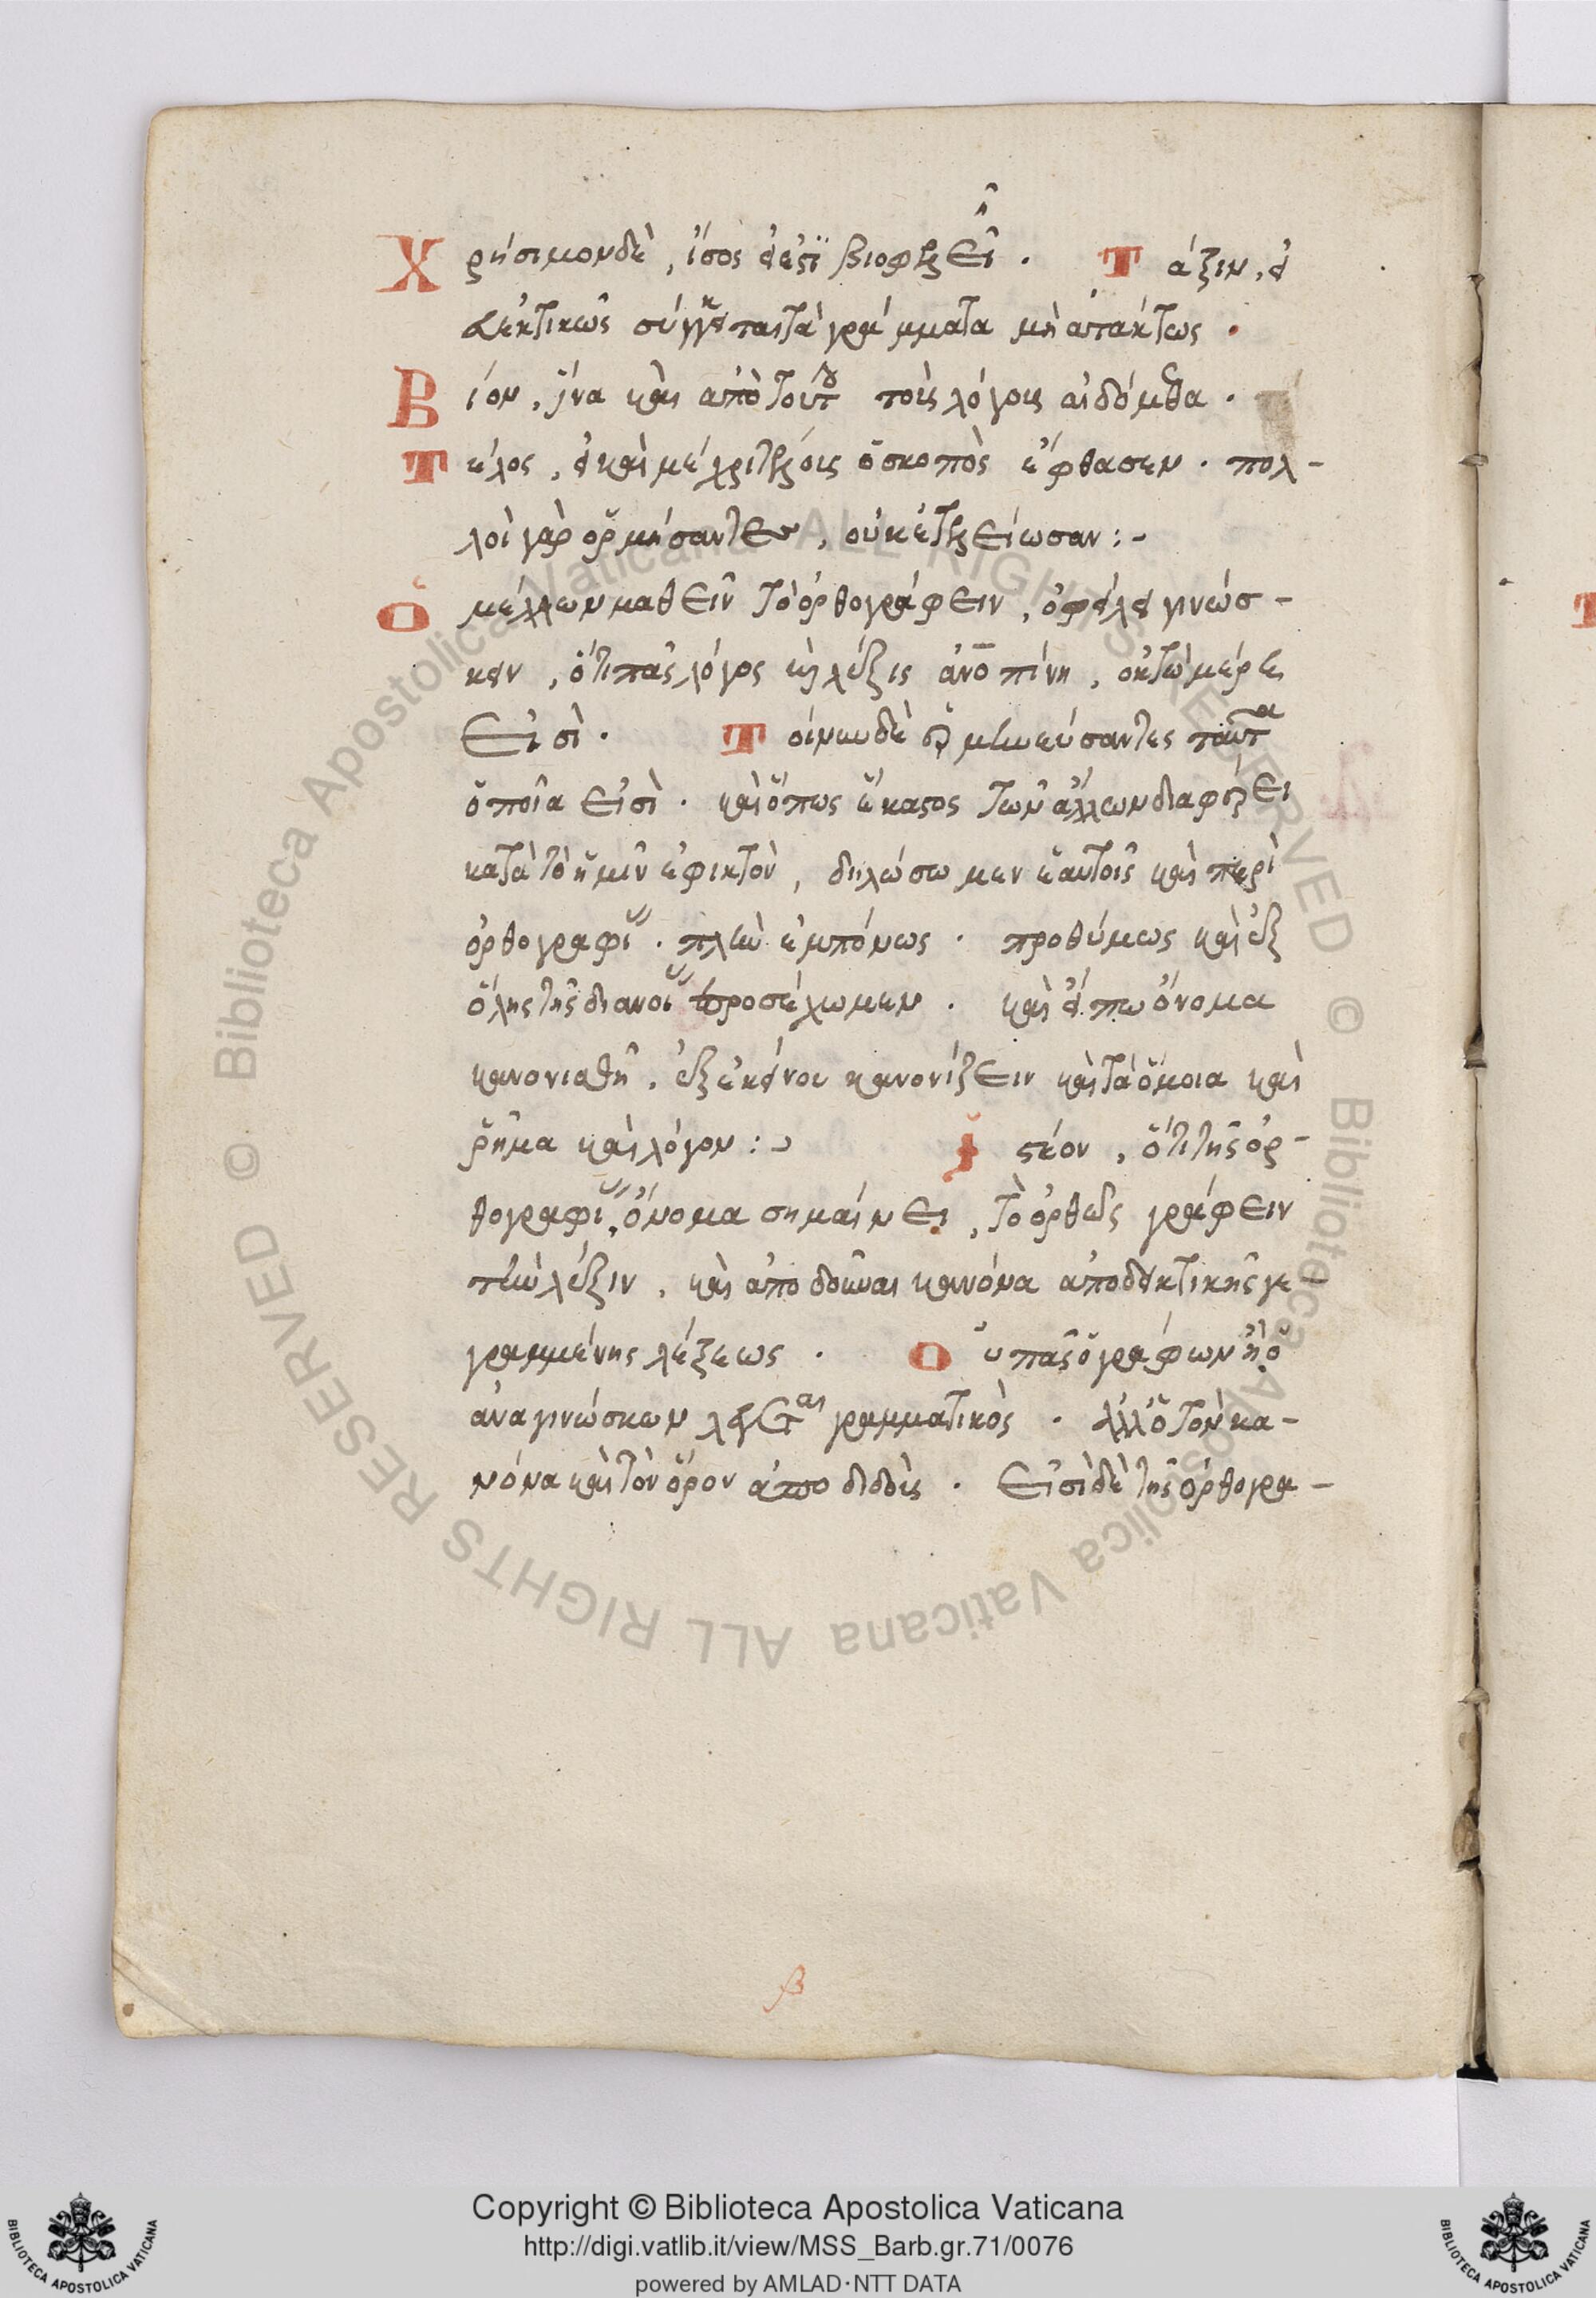 Χρήσιμον δὲ, ἴσος εἰ ἐστὶ βιοφιλεῖ. Τάξιν, εἰ
δεκτικῶς σύγκειται τὰ γράμματα μὴ ἀτάκτως.
Βίον, ἵνα καὶ ἀπὸ τούτου τοῖς λόγοις αἰδόμεθα.
Τέλος, εἰ καὶ μέχρι τέλους ὁ σκοπὸς ἔφθασεν. πολ-
λοὶ γὰρ ὁρμήσαντες, οὐκ ἐτελείωσαν:-
Ὁ μέλλων μαθεῖν τὸ ὀρθογράφειν, ὀφείλει γινώσ-
κειν, ὅτι πᾶς λόγος καὶ λέξις ἀνθρωπίνη, ὀκτὼ μέρει
εἰσὶ. Τοίνυν δὲ ἑρμηνεύσαντες ταῦτα
ὁποῖα εἰσὶ. καὶ ὅπως ἕκαστος τῶν ἄλλων διαφέρει
κατὰ τὸ ἡμῖν ἐφικτὸν, δηλώσωμεν ἑαυτοῖς καὶ περὶ
ὀρθογραφίας. πλὴν ἐμπόνως. προθύμως καὶ ἐξ
ὅλης τῆς διανοίας προσέχωμεν. καὶ εἴ πω ὄνομα
κανονισθῆ, ἐξ ἐκείνου κανονίζειν καὶ τὰ ὅμοια καὶ
ῥῆμα καὶ λόγον:- Ἰστέον, ὅτι τῆς ὀρ-
θογραφίας ὄνομα σημαίνει, τὸ ὀρθῶς γράφειν
τὴν λέξιν, καὶ ἀποδοῦναι κανόνα ἀποδεικτικῆς γε
γραμμένης λέξεως. Οὐ πᾶς ὁ γράφων ἢ ὁ
ἀναγινώσκων λέγεται γραμματικὸς. ἀλλ' ὁ τὸν κα-
νόνα καὶ τὸν ὅρον ἀποδιδοὺς. Εἰσὶ δὲ τῆς ὀρθογρα-
β
Copyright © Biblioteca Apostolica Vaticana
http://digi.vatlib.it/view/MSS_Barb.gr.71/0076
powered by AMLAD·NTT DATA
BIBLIOTECA APOSTOLICA VATICANA
BIBLIOTECA APOSTOLICA VATICANA
© Biblioteca Apostolica Vaticana ALL RIGHTS RESERVED © Biblioteca Apostolica Vaticana ALL RIGHTS RESERVED